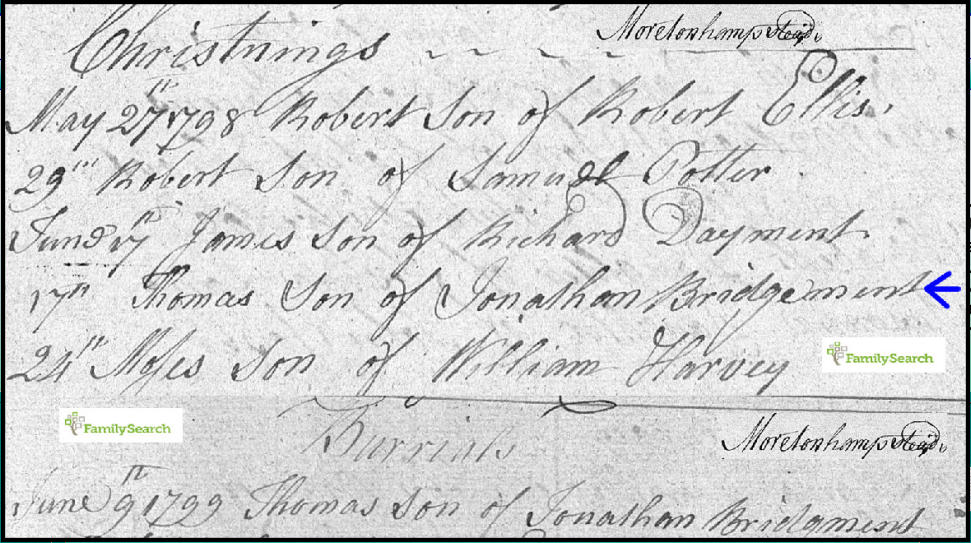 Christnings
Moretonhampstead
May 27th 1798 Robert Son of Robert Ellis
29th Robert Son of Samuel Potter
June 17th James Son of Richard Dayment
17th Thomas Son of Jonathan Bridgement
24th Moses Son of William Harvey
FamilySearch
FamilySearch
Burrials
Moretonhampstead
June 9th 1799 Thomas Son of Jonathan Bridgment